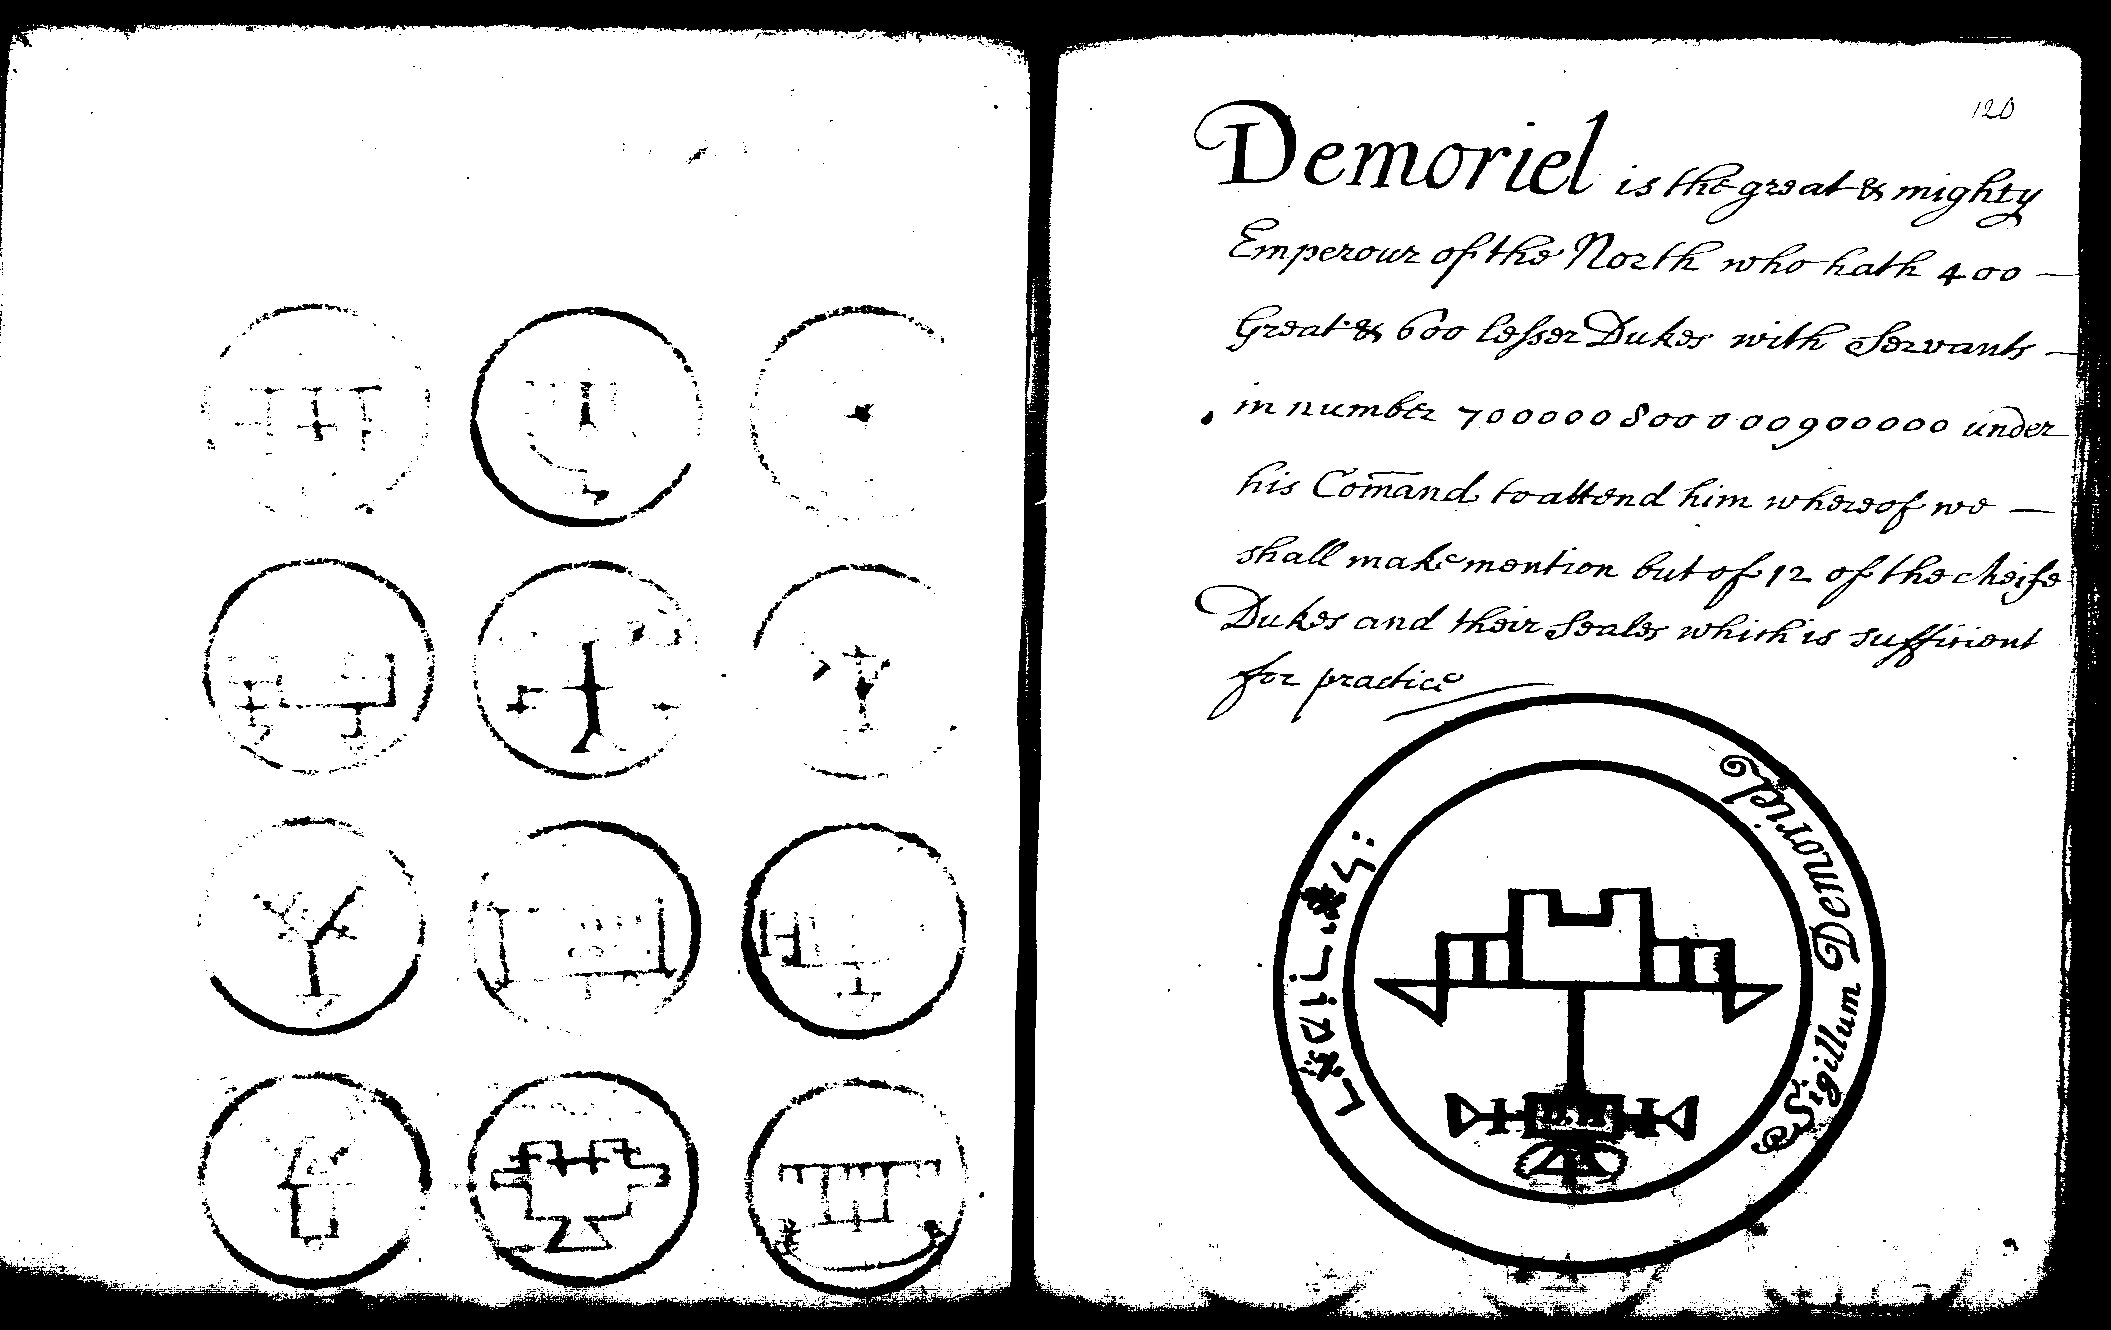 120
Demoriel is the great & mighty
Emperour of the North who hath 400 —
Great & 600 lesser Dukes with Servants —
in number 700000800000900000 under
his Com̄and to attend him whereof we —
shall make mention but of 12 of the cheife
Dukes and their Seales which is sufficient
for practice
Sigillum Demoriel